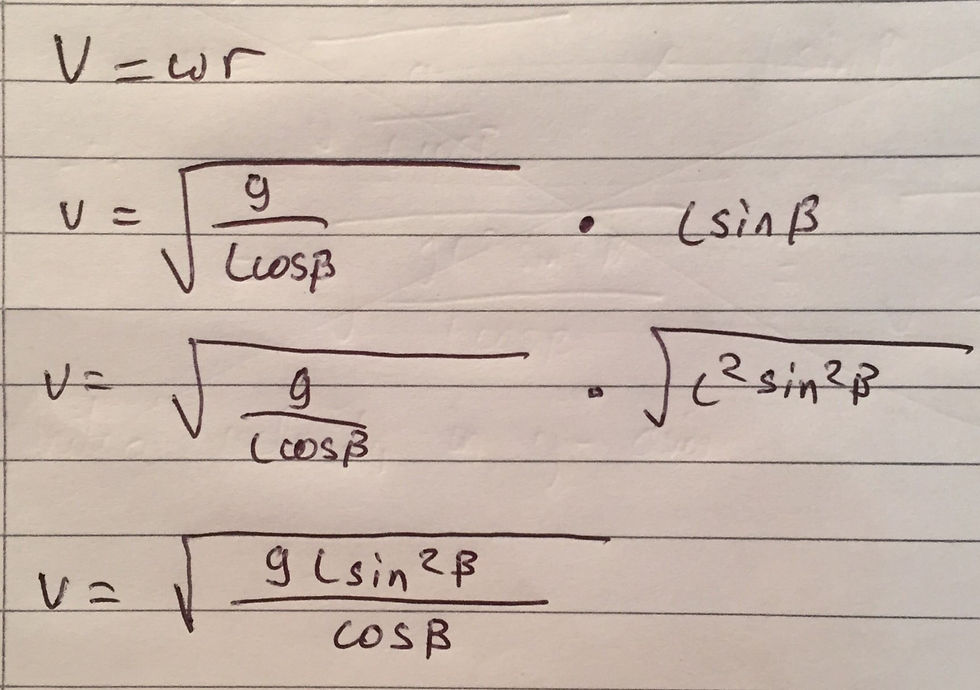 V = ωr
v = √(g / (L cosβ)) · L sinβ
v = √(g / (L cosβ)) · √(L² sin²β)
v = √(g L sin²β / cosβ)